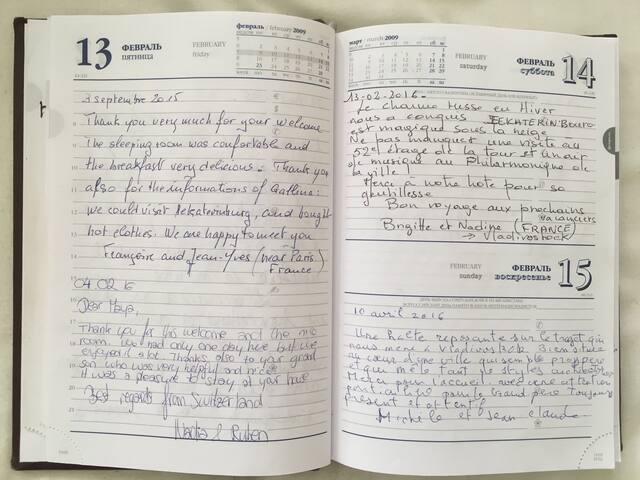 13 ФЕВРАЛЬ
пятница
FEBRUARY
friday
февраль / february 2009
3 septembre 2015
Thank you very much for your welcome
The sleeping room was comfortable and
the breakfast very delicious. Thank you
also for the informations of Gallina:
we could visit Iekaterinburg, and bought
hot clothes. We are happy to meet you
Françoise and Jean-Yves (near Paris)
France
04 02 16
Dear Maya,
Thank you for this welcome and the nice
room. We had only one day here but we
enjoyed it a lot. Thanks also to your grand
son who was very helpful and nice.
It was a pleasure to stay at your house
Best regards from Switzerland
& Ruben
март / march 2009
FEBRUARY
saturday
ФЕВРАЛЬ
суббота 14
13-02-2016-
Le charme russe en Hiver
nous a conquis
est magique sous la neige
Ne pas manquer une visite au
52e étage de la tour et un tour
de musique au Philharmonique de
la ville!
Merci à notre hôte pour sa
gentillesse
Bon voyage aux prochains
vacanciers
Brigitte et Nadine (FRANCE)
→ Vladivostock
FEBRUARY
sunday
ФЕВРАЛЬ
воскресенье 15
10 avril 2016
Une halte reposante sur le trajet qui
nous mène à Vladivostock. Bien située
au cœur d'une ville qui semble prospère
et qui mêle tant de styles
Merci pour l'accueil avec une attention
particulière pour le grand père toujours
présent et attentif
Michèle et Jean Claude